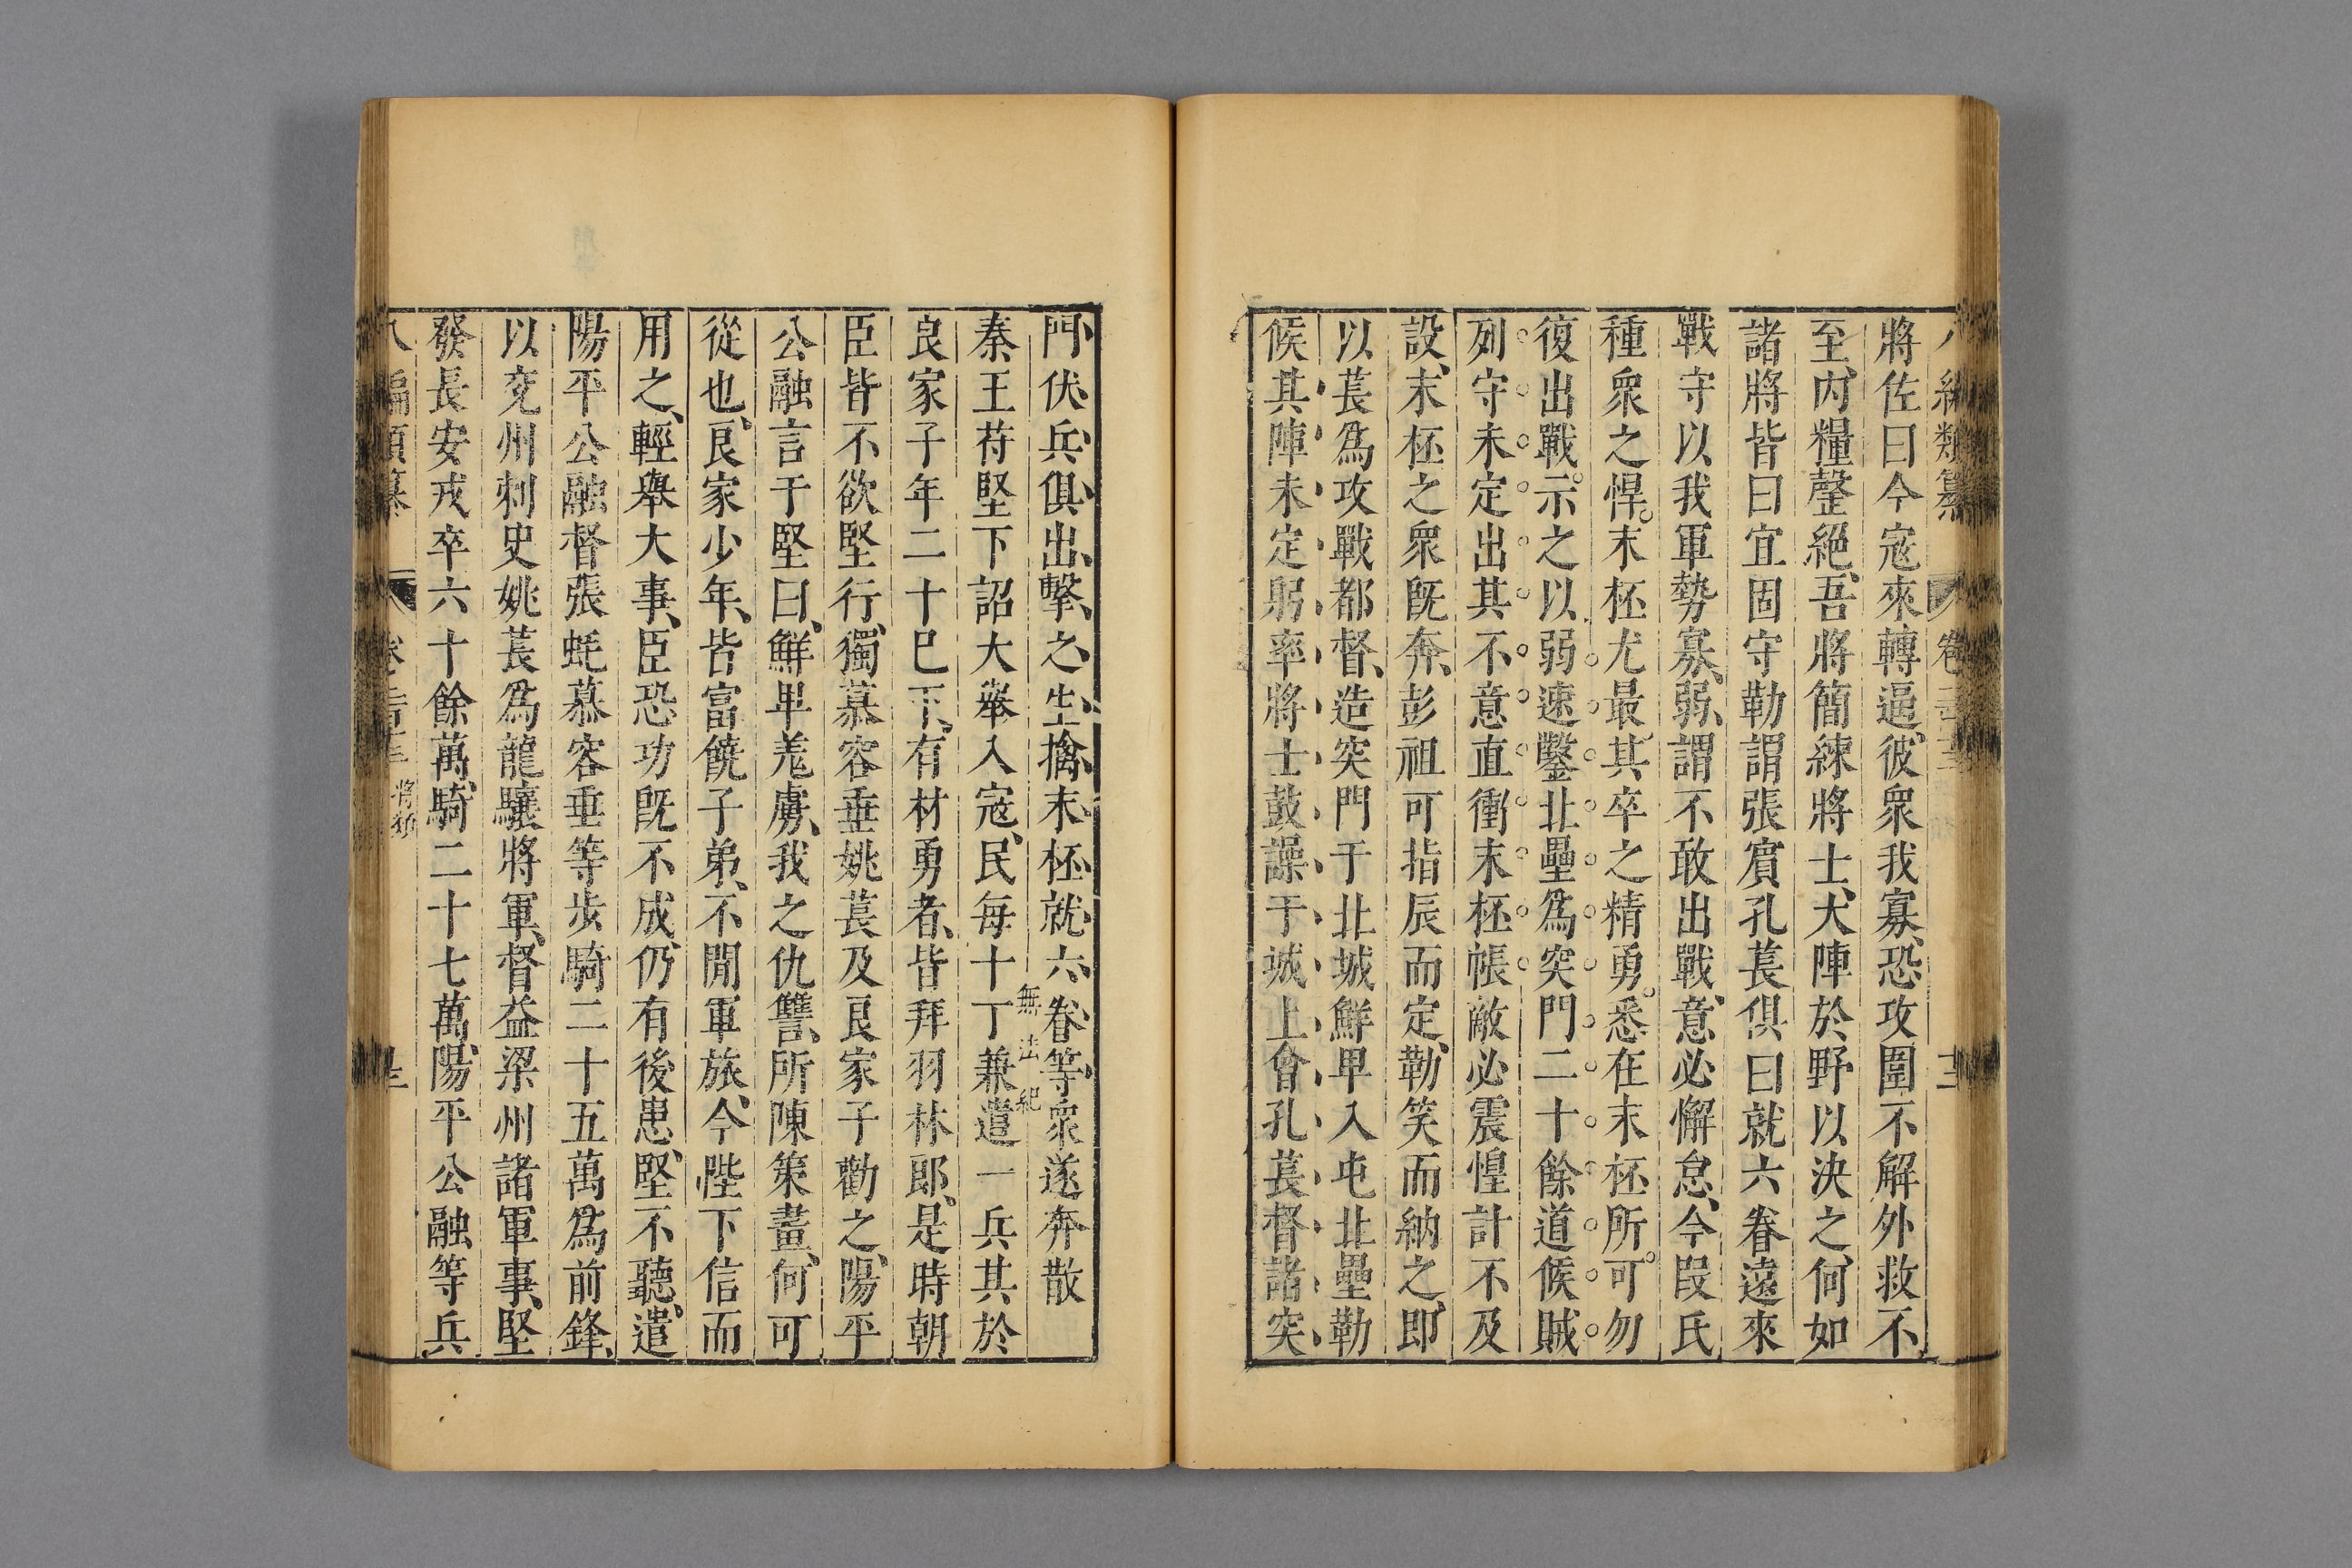 將佐曰今寇來轉逼、彼衆我寡、恐攻圍不解外救不
至、內糧罄絕、吾將簡練將士、大陣於野以決之、何如
諸將皆曰宜固守勒謂張賓孔萇俱曰就六眷遠來
戰守以我軍勢寡弱、謂不敢出戰、意必懈怠、今段氏
種衆之悍。末柸尤最其卒之精勇。悉在末柸所。可勿
復出戰。示之以弱速鑿北壘爲突門二十餘道候賊
列守未定出其不意直衝末柸帳敵必震惶計不及
設、末柸之衆旣奔、彭祖可指辰而定、勒笑而納之、卽
以萇爲攻戰都督、造突門于北城鮮卑入屯北壘勒
候其陣未定躬率將士鼓譟于城上會孔萇督諸突
八編類纂 卷
門伏兵俱出擊之生擒末柸就六眷等衆遂奔散
無法紀
秦王苻堅下詔大舉入寇、民每十丁兼遣一兵其於
良家子年二十巳下、有材勇者、皆拜羽林郎、是時朝
臣皆不欲堅行、獨慕容垂姚萇及良家子勸之、陽平
公融言于堅曰、鮮卑羌虜、我之仇讐、所陳策畫、何可
從也、良家少年、皆富饒子弟、不閑軍旅、今陛下信而
用之、輕舉大事、臣恐功旣不成、仍有後患、堅不聽、遣
陽平公融督張蚝慕容垂等步騎二十五萬爲前鋒、
以兗州刺史姚萇爲龍驤將軍、督益梁州諸軍事、堅
發長安戎卒六十餘萬、騎二十七萬、陽平公融等兵
將類